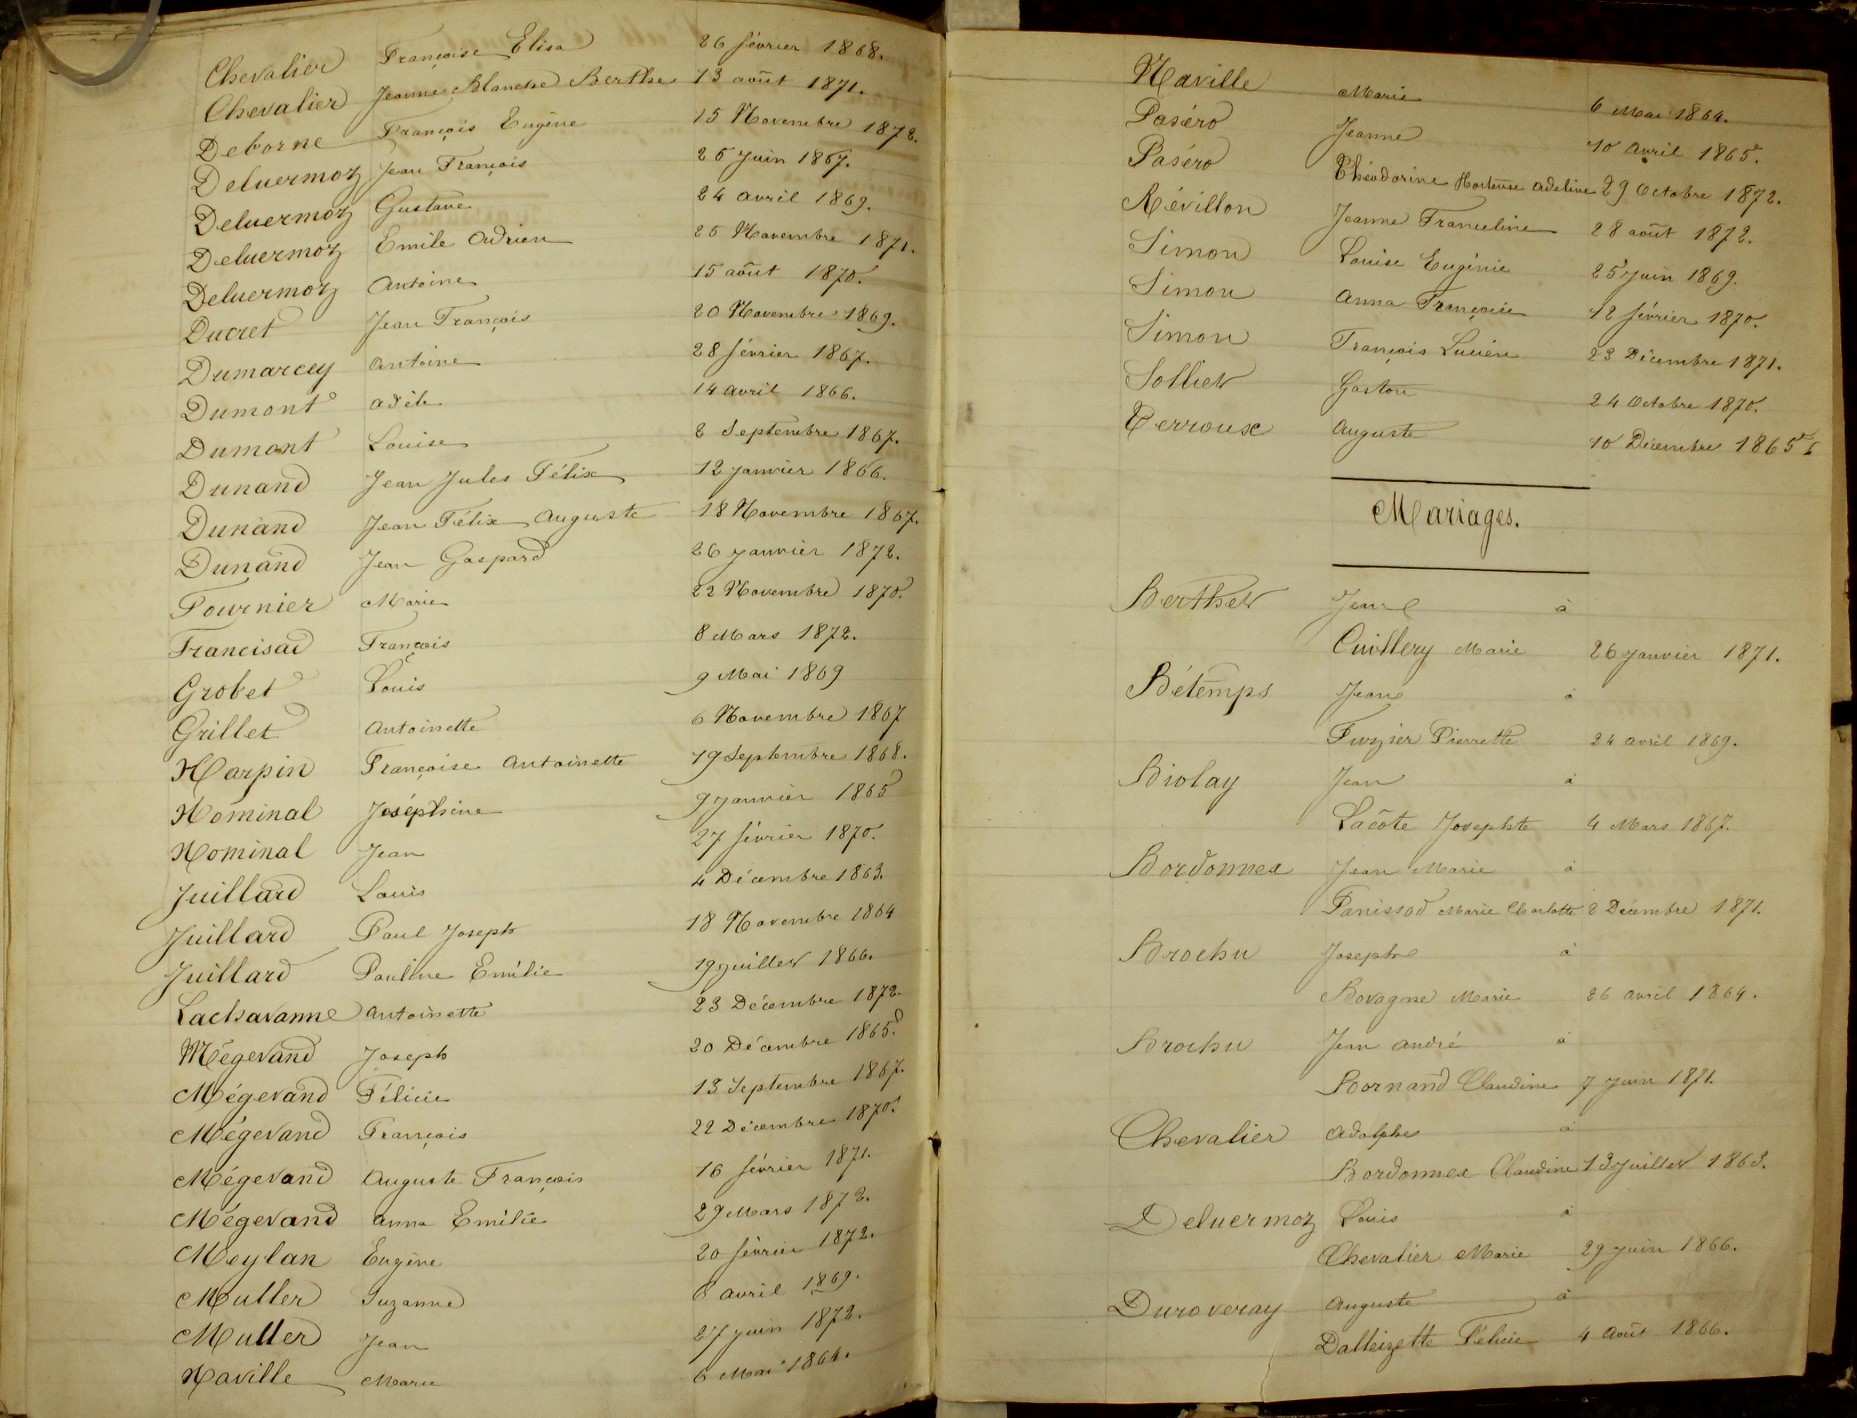 Chevalier Françoise Elisa 26 février 1868.
Chevalier Jeanne Blanche Berthe 13 août 1871.
Deborne François Eugène 15 Novembre 1872.
Deluermoz Jean François 25 Juin 1867.
Deluermoz Gustave 24 avril 1869.
Deluermoz Emile Adrien 25 Novembre 1871.
Deluermoz Antoine 15 août 1870.
Ducret Jean François 20 Novembre 1869.
Dumarcey Antoine 28 février 1867.
Dumont Adèle 14 avril 1866.
Dumont Louise 2 Septembre 1867.
Dunand Jean Jules Félix 12 janvier 1866.
Dunand Jean Félix Auguste 18 Novembre 1867.
Dunand Jean Gaspard 26 janvier 1872.
Fournier Marie 22 Novembre 1870.
Francisod François 8 Mars 1872.
Grobet Louis 9 Mai 1869
Grillet Antoinette 6 Novembre 1867
Harpin Françoise Antoinette 19 Septembre 1868.
Hominal Joséphine 9 janvier 1865
Hominal Jean 27 février 1870.
Juillard Louis 4 Décembre 1863.
Juillard Paul Joseph 18 Novembre 1864
Juillard Pauline Emilie 19 juillet 1866.
Lachavanne Antoinette 23 Décembre 1872.
Mégevand Joseph 20 Décembre 1865.
Mégevand Félicie 13 Septembre 1867.
Mégevand François 22 Décembre 1870.
Mégevand Auguste François 16 février 1871.
Mégevand Anna Emilie 29 Mars 1872.
Meylan Eugène 20 février 1872.
Muller Suzanne avril 1869.
Muller Jean 27 juin 1872.
Naville Marie 6 Mai 1864.
Naville Marie 6 Mai 1864.
Paséro Jeanne 10 Avril 1865.
Paséro Théodorine Hortense Adeline 29 Octobre 1872.
Révillon Jeanne Franceline 28 août 1872.
Simon Louise Eugénie 25 Juin 1869.
Simon Anna Françoise 12 février 1870.
Simon François Lucien 23 Décembre 1871.
Sollier Gaston 24 Octobre 1870.
Terroux Auguste 10 Décembre 1865
Mariages.
Berthet Jean à
Cuillery Marie 26 janvier 1871.
Bétemps Jean à
Fuzier Pierrette 24 avril 1869.
Biolay Jean à
Lacôte Josephte 4 Mars 1867.
Bordonnex Jean Marie à
Panissod Marie Charlotte 2 Décembre 1871.
Brochu Joseph à
Bovagne Marie 26 avril 1864.
Brochu Jean André à
Bornand Claudine 7 juin 1871.
Chevalier Adolphe à
Bordonnex Claudine 13 juillet 1863.
Deluermoz Louis à
Chevalier Marie 29 juin 1866.
Duroveray Auguste à
Dalleizette Félicie 4 Août 1866.